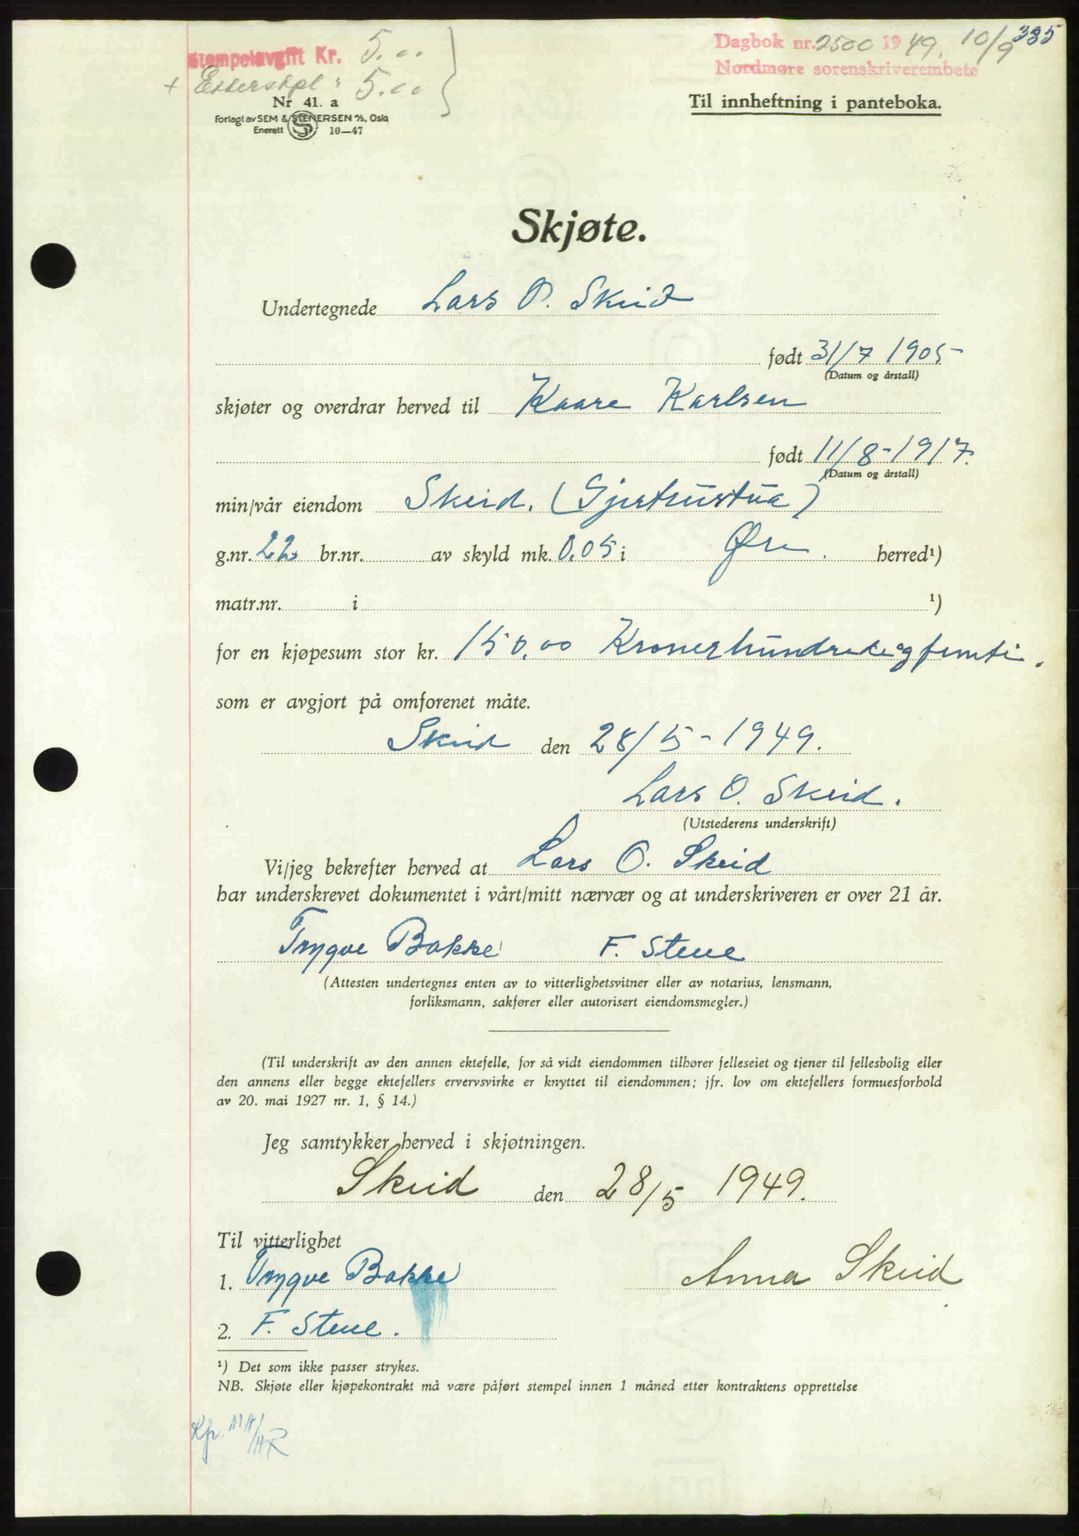 Stempelavgift Kr. 5.00
+ Etterstpl: 5.00
Dagbok nr. 2500 1949. 10/9 335
Nordmøre sorenskriverembete
Nr 41. a
Forlagt av SEM & STENERSEN A/S, Oslo
Enerett S 10—47
Til innheftning i panteboka.
Skjøte.
Undertegnede Lars O. Skeid
født 31/7 1905
(Datum og årstall)
skjøter og overdrar herved til Kaare Karlsen
født 11/8-1917.
(Datum og årstall)
min/vår eiendom Skeid. (Gjertrustua)
g.nr. 22 br.nr. av skyld mk. 0.05 i Øre. herred¹)
matr.nr. i ¹)
for en kjøpesum stor kr. 150,00 Kronerhundredeogfemti.
som er avgjort på omforenet måte.
Skeid den 28/5-1949.
Lars O. Skeid.
(Utstederens underskrift)
Vi/jeg bekrefter herved at Lars O. Skeid
har underskrevet dokumentet i vårt/mitt nærvær og at underskriveren er over 21 år.
Trygve Bakke F. Stene
(Attesten undertegnes enten av to vitterlighetsvitner eller av notarius, lensmann,
forliksmann, sakfører eller autorisert eiendomsmegler.)
(Til underskrift av den annen ektefelle, for så vidt eiendommen tilhører felleseiet og tjener til fellesbolig eller
den annens eller begge ektefellers ervervsvirke er knyttet til eiendommen; jfr. lov om ektefellers formuesforhold
av 20. mai 1927 nr. 1, § 14.)
Jeg samtykker herved i skjøtningen.
Skeid den 28/5 1949.
Til vitterlighet
1. Trygve Bakke Anna Skeid
2. F. Stene.
¹) Det som ikke passer strykes.
NB. Skjøte eller kjøpekontrakt må være påført stempel innen 1 måned etter kontraktens opprettelse